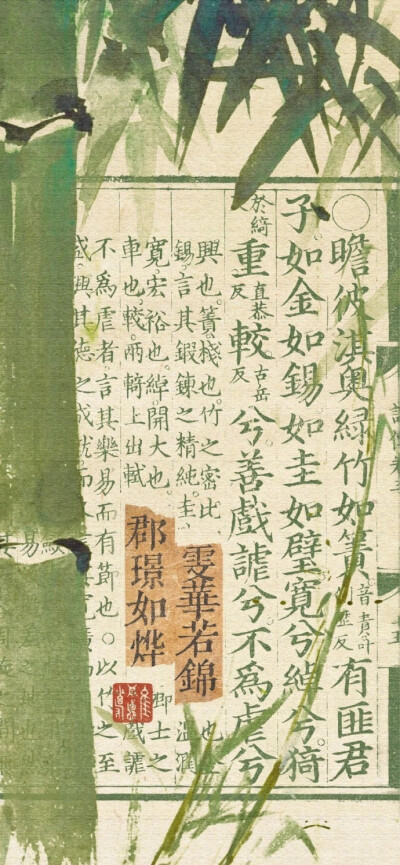 ○瞻彼淇奧綠竹如簀音責叶反有匪君
子如金如錫如圭如璧寬兮綽兮猗
於綺反重直恭反較古岳反兮善戲謔兮不為虐兮
興也簀棧也竹之密比
也金
錫言其鍛鍊之精純圭
溫潤
寬宏裕也綽開大也
卽士之
車也較兩輢上出軾
戲謔
不為虐者言其樂易而有節也○以竹之至
盛興其德之成就而
雯華若錦
郡璟如烨